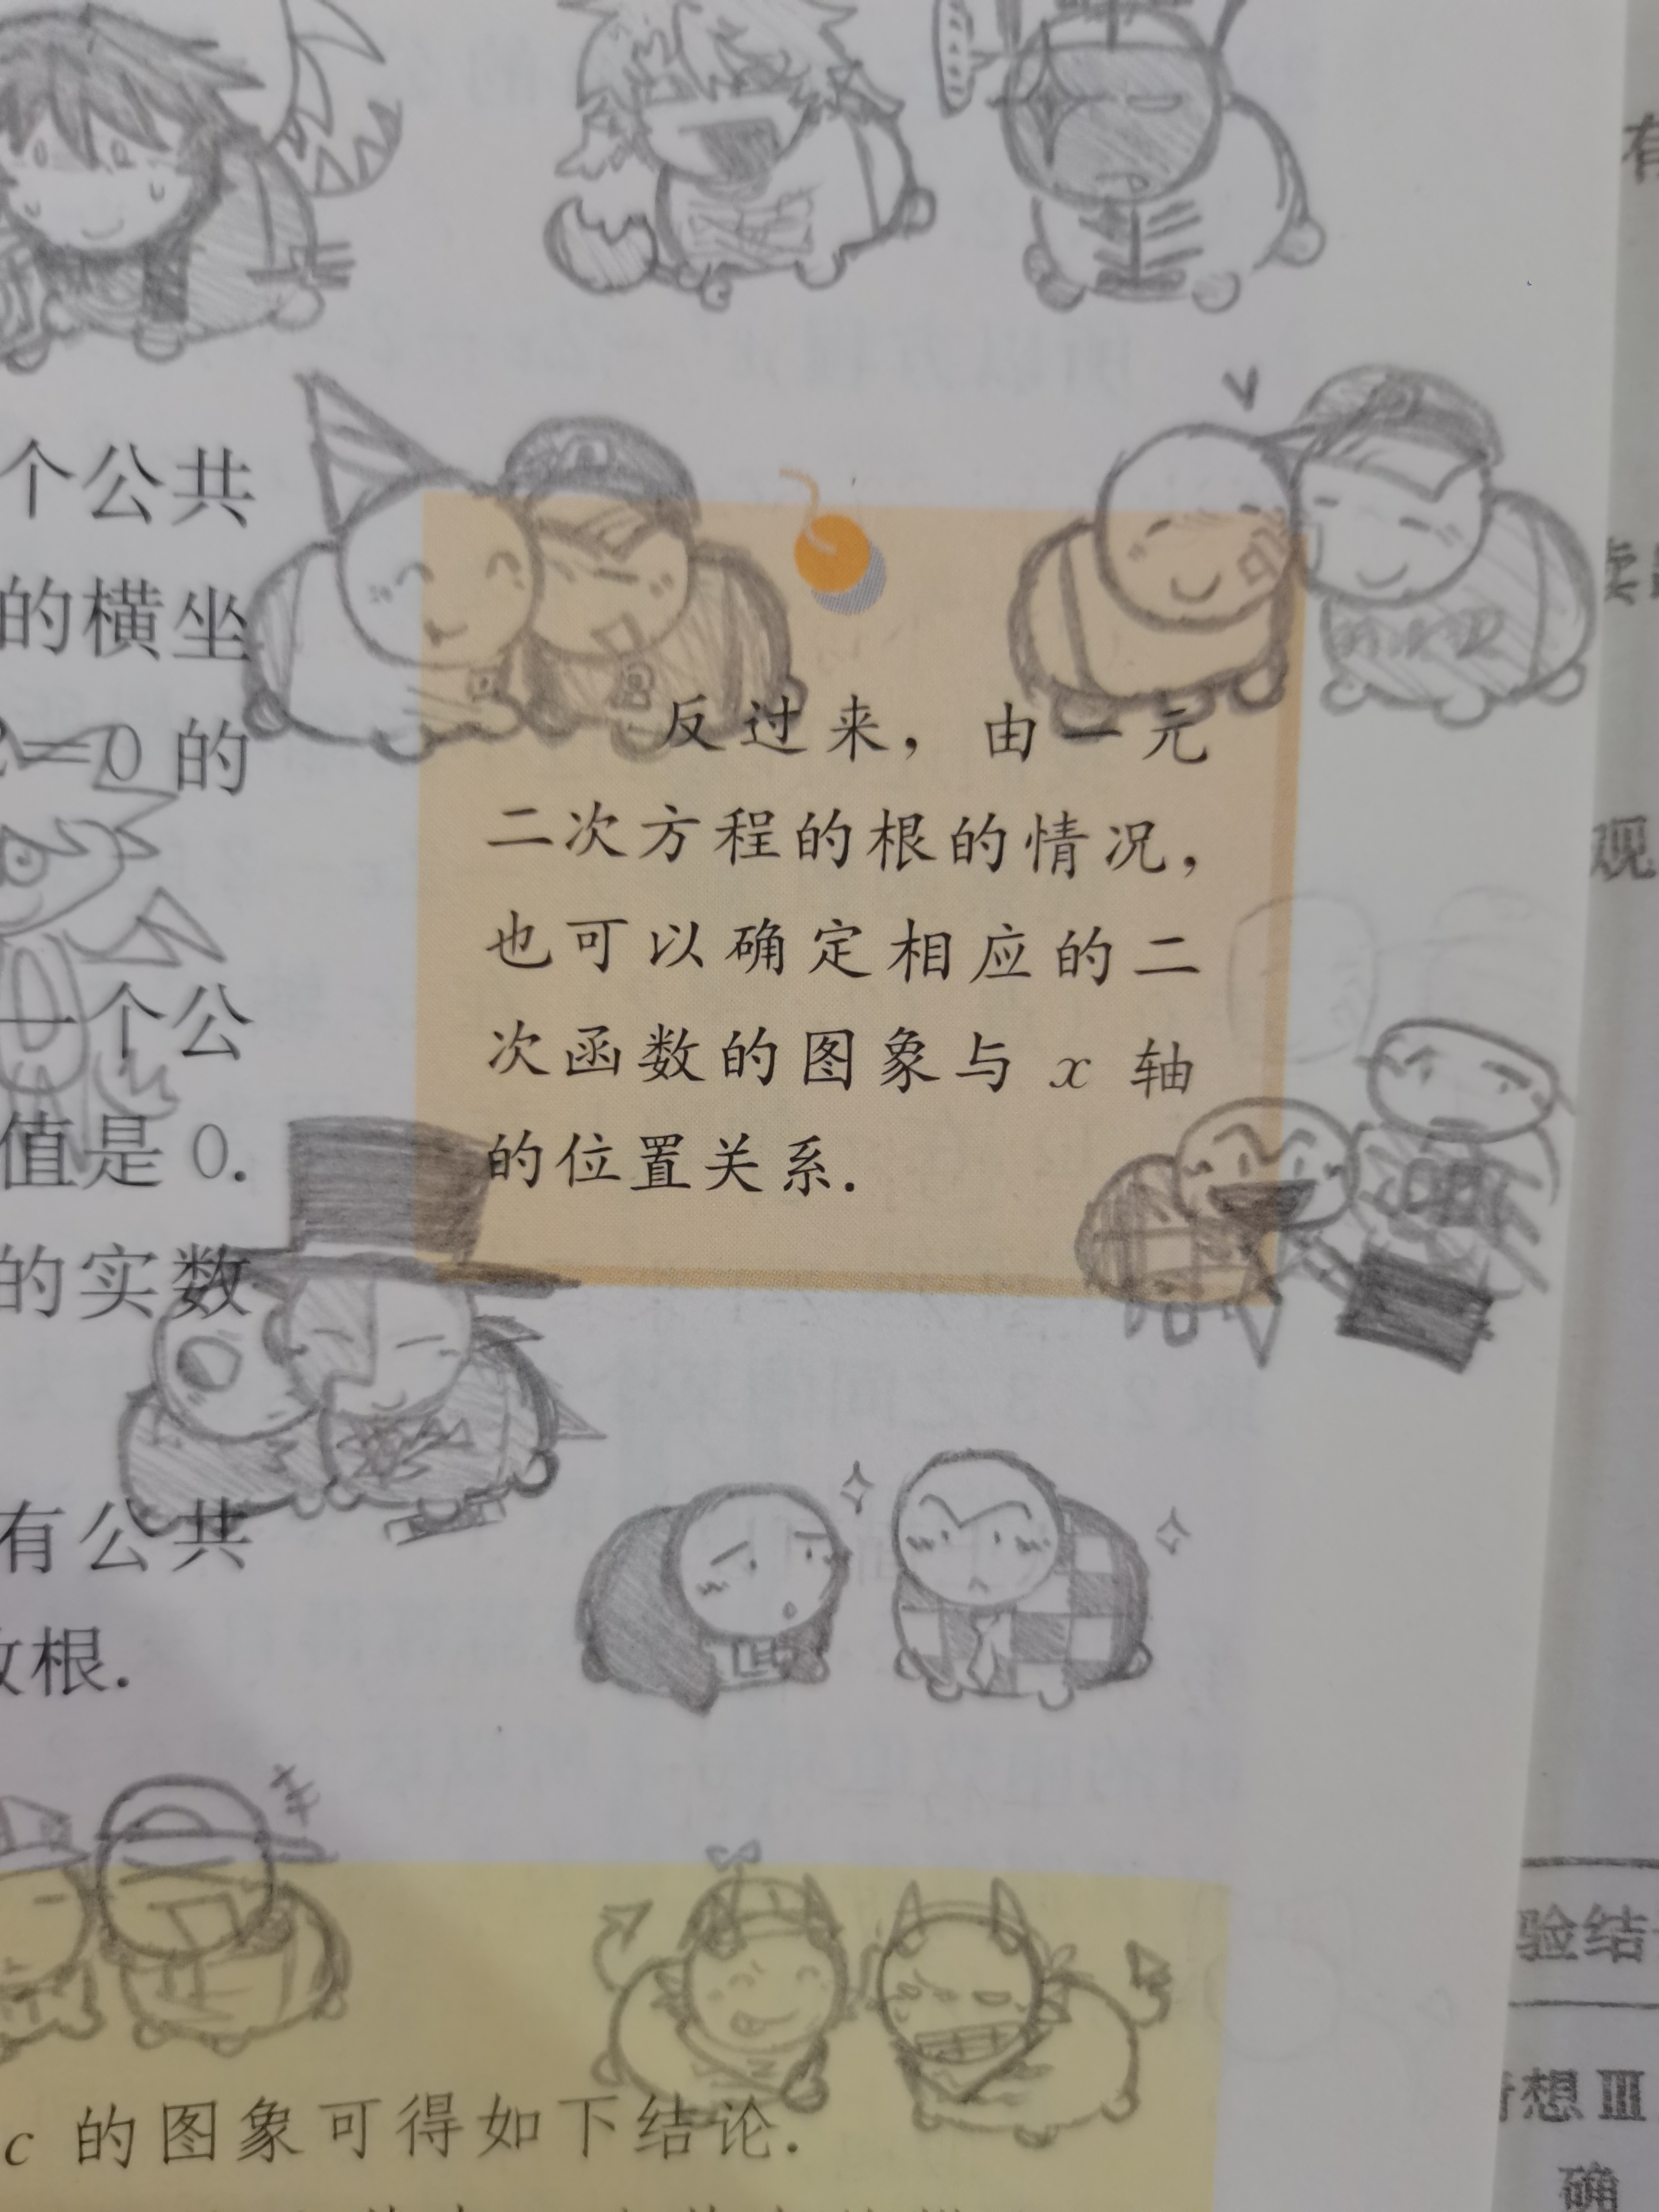 个公共
的横坐
=0 的
反过来，由一元
二次方程的根的情况，
也可以确定相应的二
次函数的图象与 x 轴
的位置关系.
一个公
值是 0.
的实数
有公共
数根.
c 的图象可得如下结论.
有
观
验结
想Ⅲ
确